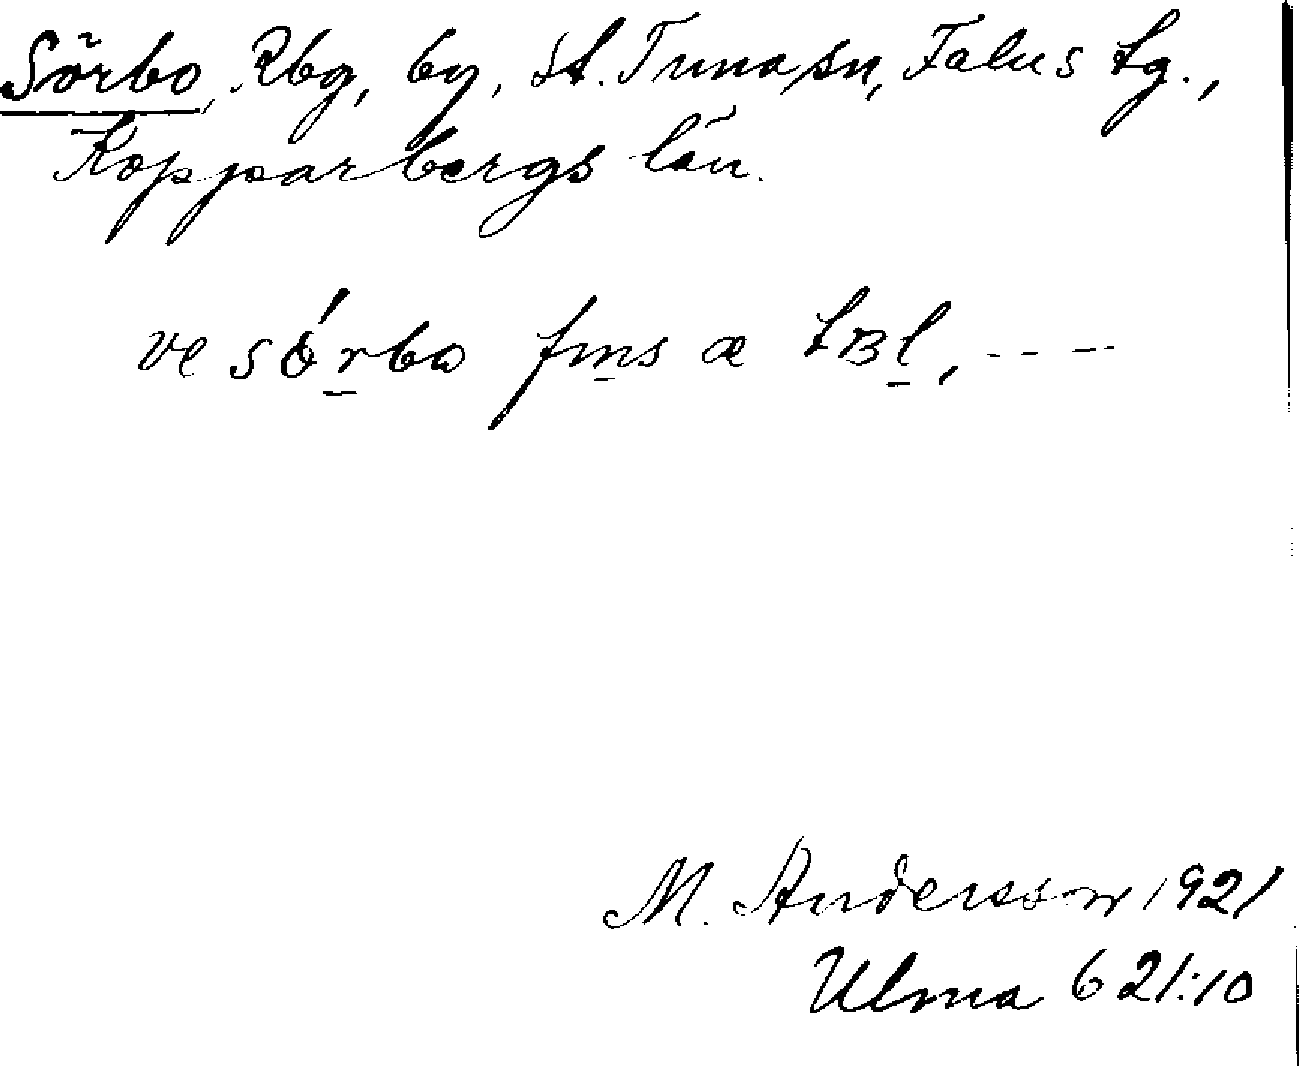 Sörbo, Rbg, by, St. Tuna sn, Falus tg.,
Kopparbergs län.
ve sörbo fms æ tBl, - - -
M. Andersson 1921
Ulma 621:10